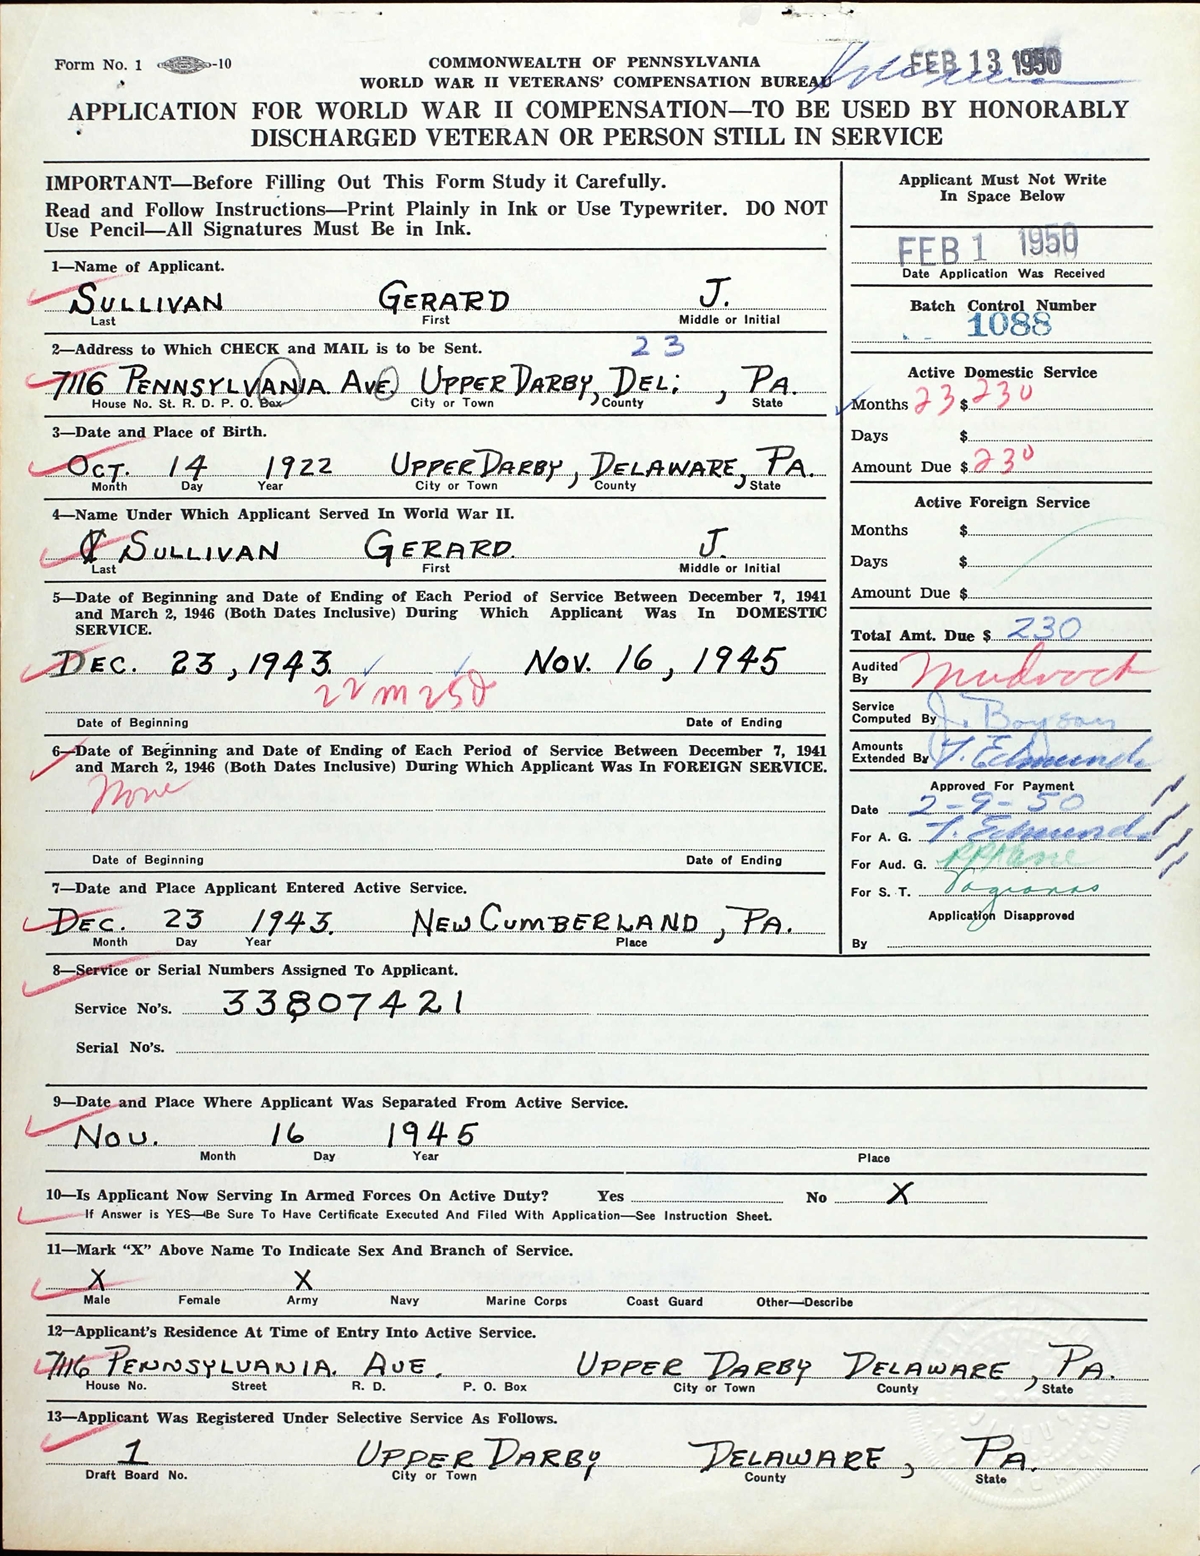 Form No. 1 -10
COMMONWEALTH OF PENNSYLVANIA
WORLD WAR II VETERANS' COMPENSATION BUREAU
FEB 13 1950
APPLICATION FOR WORLD WAR II COMPENSATION—TO BE USED BY HONORABLY
DISCHARGED VETERAN OR PERSON STILL IN SERVICE
IMPORTANT—Before Filling Out This Form Study it Carefully.
Read and Follow Instructions—Print Plainly in Ink or Use Typewriter. DO NOT
Use Pencil—All Signatures Must Be in Ink.
1—Name of Applicant.
SULLIVAN GERARD J.
Last First Middle or Initial
2—Address to Which CHECK and MAIL is to be Sent. 23
7116 PENNSYLVANIA AVE UPPER DARBY, DEL; , PA.
House No. St. R. D. P. O. Box City or Town County State
3—Date and Place of Birth.
OCT. 14 1922 UPPER DARBY, DELAWARE, PA.
Month Day Year City or Town County State
4—Name Under Which Applicant Served In World War II.
SULLIVAN GERARD. J.
Last First Middle or Initial
5—Date of Beginning and Date of Ending of Each Period of Service Between December 7, 1941
and March 2, 1946 (Both Dates Inclusive) During Which Applicant Was In DOMESTIC
SERVICE.
DEC. 23, 1943. NOV. 16, 1945
22 m 25 d
Date of Beginning Date of Ending
6—Date of Beginning and Date of Ending of Each Period of Service Between December 7, 1941
and March 2, 1946 (Both Dates Inclusive) During Which Applicant Was In FOREIGN SERVICE.
None
Date of Beginning Date of Ending
7—Date and Place Applicant Entered Active Service.
DEC. 23 1943. NEW CUMBERLAND, PA.
Month Day Year Place
Applicant Must Not Write
In Space Below
FEB 1 1950
Date Application Was Received
Batch Control Number
1088
Active Domestic Service
Months 23 $ 230
Days $
Amount Due $ 230
Active Foreign Service
Months $
Days $
Amount Due $
Total Amt. Due $ 230
Audited
By Murdoch
Service
Computed By J. Boyson
Amounts
Extended By T. Edmunds
Approved For Payment
Date 2-9-50
For A. G. T. Edmunds
For Aud. G.
For S. T.
Application Disapproved
By
8—Service or Serial Numbers Assigned To Applicant.
Service No's. 33807421
Serial No's.
9—Date and Place Where Applicant Was Separated From Active Service.
NOV. 16 1945
Month Day Year Place
10—Is Applicant Now Serving In Armed Forces On Active Duty? Yes No X
If Answer is YES—Be Sure To Have Certificate Executed And Filed With Application—See Instruction Sheet.
11—Mark "X" Above Name To Indicate Sex And Branch of Service.
X X
Male Female Army Navy Marine Corps Coast Guard Other—Describe
12—Applicant's Residence At Time of Entry Into Active Service.
7116 PENNSYLVANIA. AVE. UPPER DARBY DELAWARE, PA.
House No. Street R. D. P. O. Box City or Town County State
13—Applicant Was Registered Under Selective Service As Follows.
1 UPPER DARBY DELAWARE, PA.
Draft Board No. City or Town County State